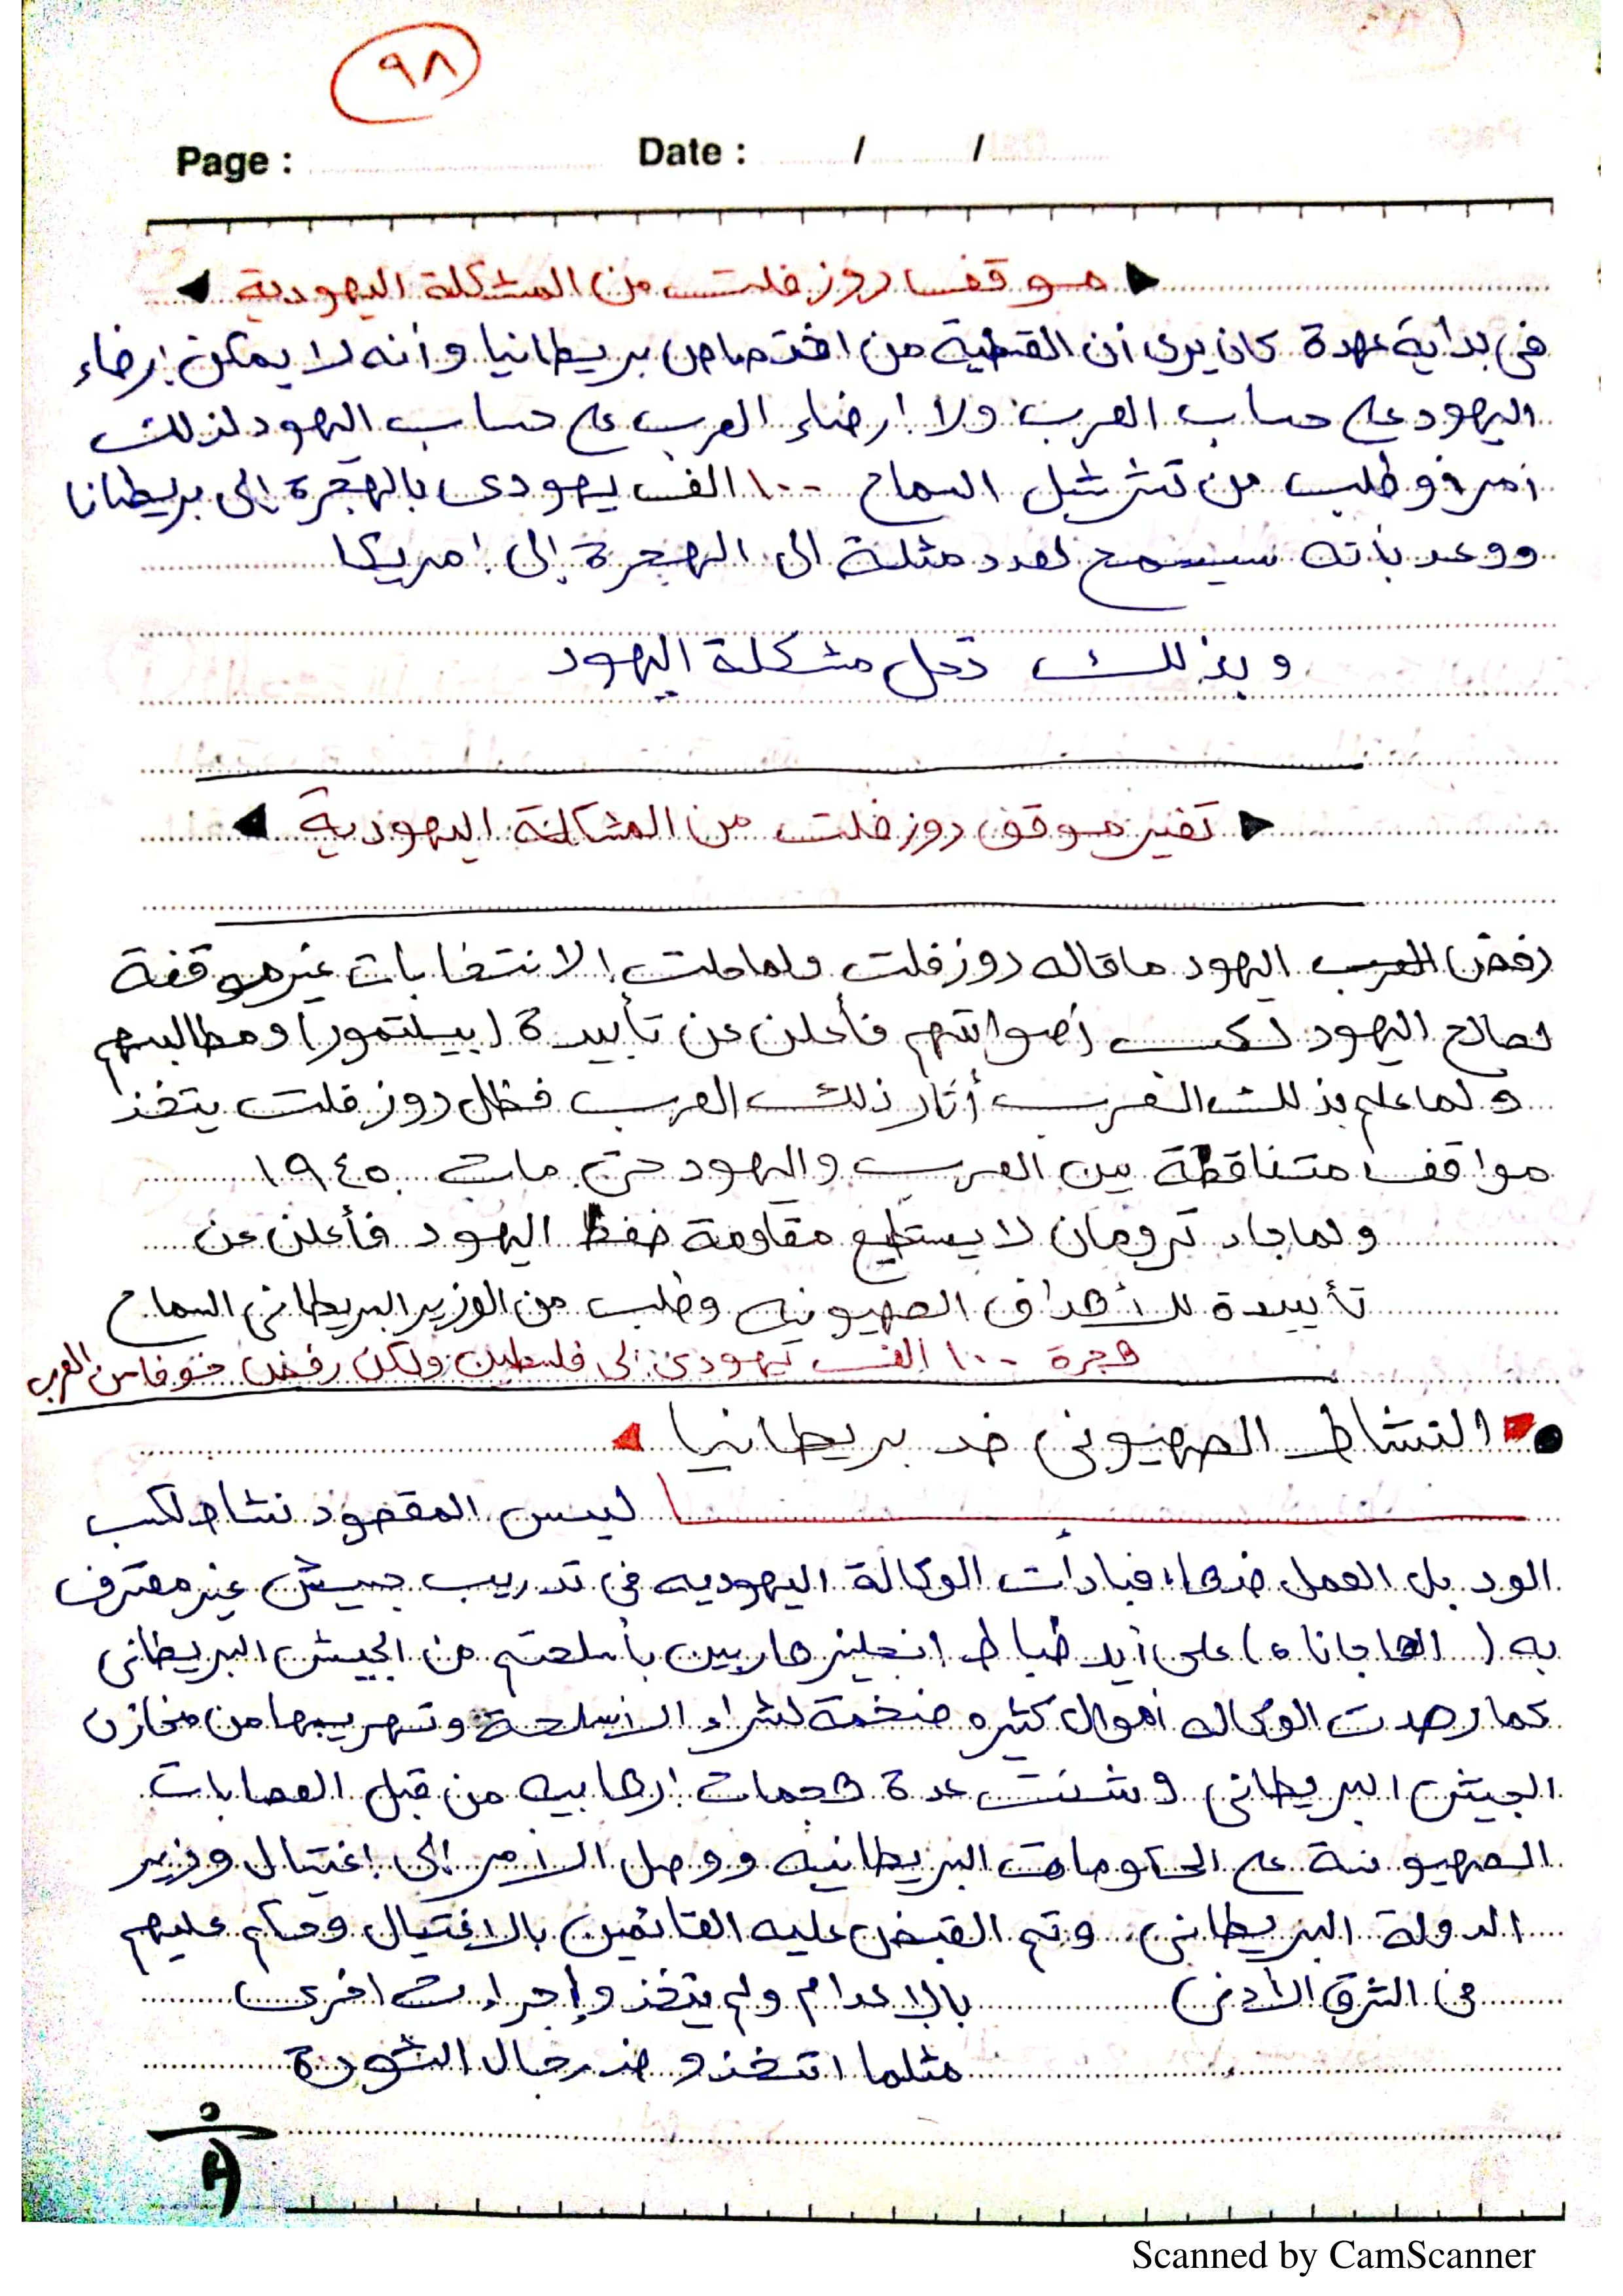 ٩٨
Page : Date : / /
موقف روزفلت من المشكلة اليهودية
فى بداية عهدة كان يرى أن القضية من اختصاص بريطانيا وأنه لا يمكن إرضاء
اليهود على حساب العرب ولا إرضاء العرب على حساب اليهود لذلك
وطلب من تشرشل السماح ١٠٠ الف يهودى بالهجرة إلى بريطانا
ووعد بأنه سيسمح لعدد مثلة الى الهجرة إلى امريكا
وبذلك تحل مشكلة اليهود
تغير موقف روزفلت من المشكلة اليهودية
رفض العرب اليهود ماقاله روزفلت ولما حلت الانتخابات غير موقفة
لصالح اليهود لكسب أصواتهم فأعلن عن تأييدة (بيلتمور) ومطالبهم
ولما علم بذلك العرب أثار ذلك العرب فظل روزفلت يتخذ
مواقف متناقضة بين العرب واليهود حتى مات ١٩٤٥
ولما جاء ترومان لا يستطيع مقاومة ضغط اليهود فأعلن عن
تأييدة للأهداف الصهيونيه وطلب من الوزير البريطانى السماح
هجرة ١٠٠ الف يهودى إلى فلسطين ولكن رفض خوفا من العرب
النشاط الصهيونى ضد بريطانيا
ليس المقصود نشاط لكسب
الود بل العمل ضدها، فبدأت الوكالة اليهوديه فى تدريب جيش غير معترف
به (الهاجاناه) على أيد ضباط انجليز هاربين بأسلحتهم من الجيش البريطانى
كما رصدت الوكاله أموال كثيره ضخمة لشراء الأسلحة وتهريبها من مخازن
الجيش البريطانى وشنت عدة هجمات إرهابيه من قبل العصابات
الصهيونية على الحكومات البريطانيه ووصل الأمر إلى إغتيال وزير
الدولة البريطانى وتم القبض عليه القائمين بالإغتيال وحكم عليهم
فى الشرق الأدنى بالإعدام ولم يتخذو إجراءت اخرى
مثلما اتخذو ضد رجال الثورة
Scanned by CamScanner